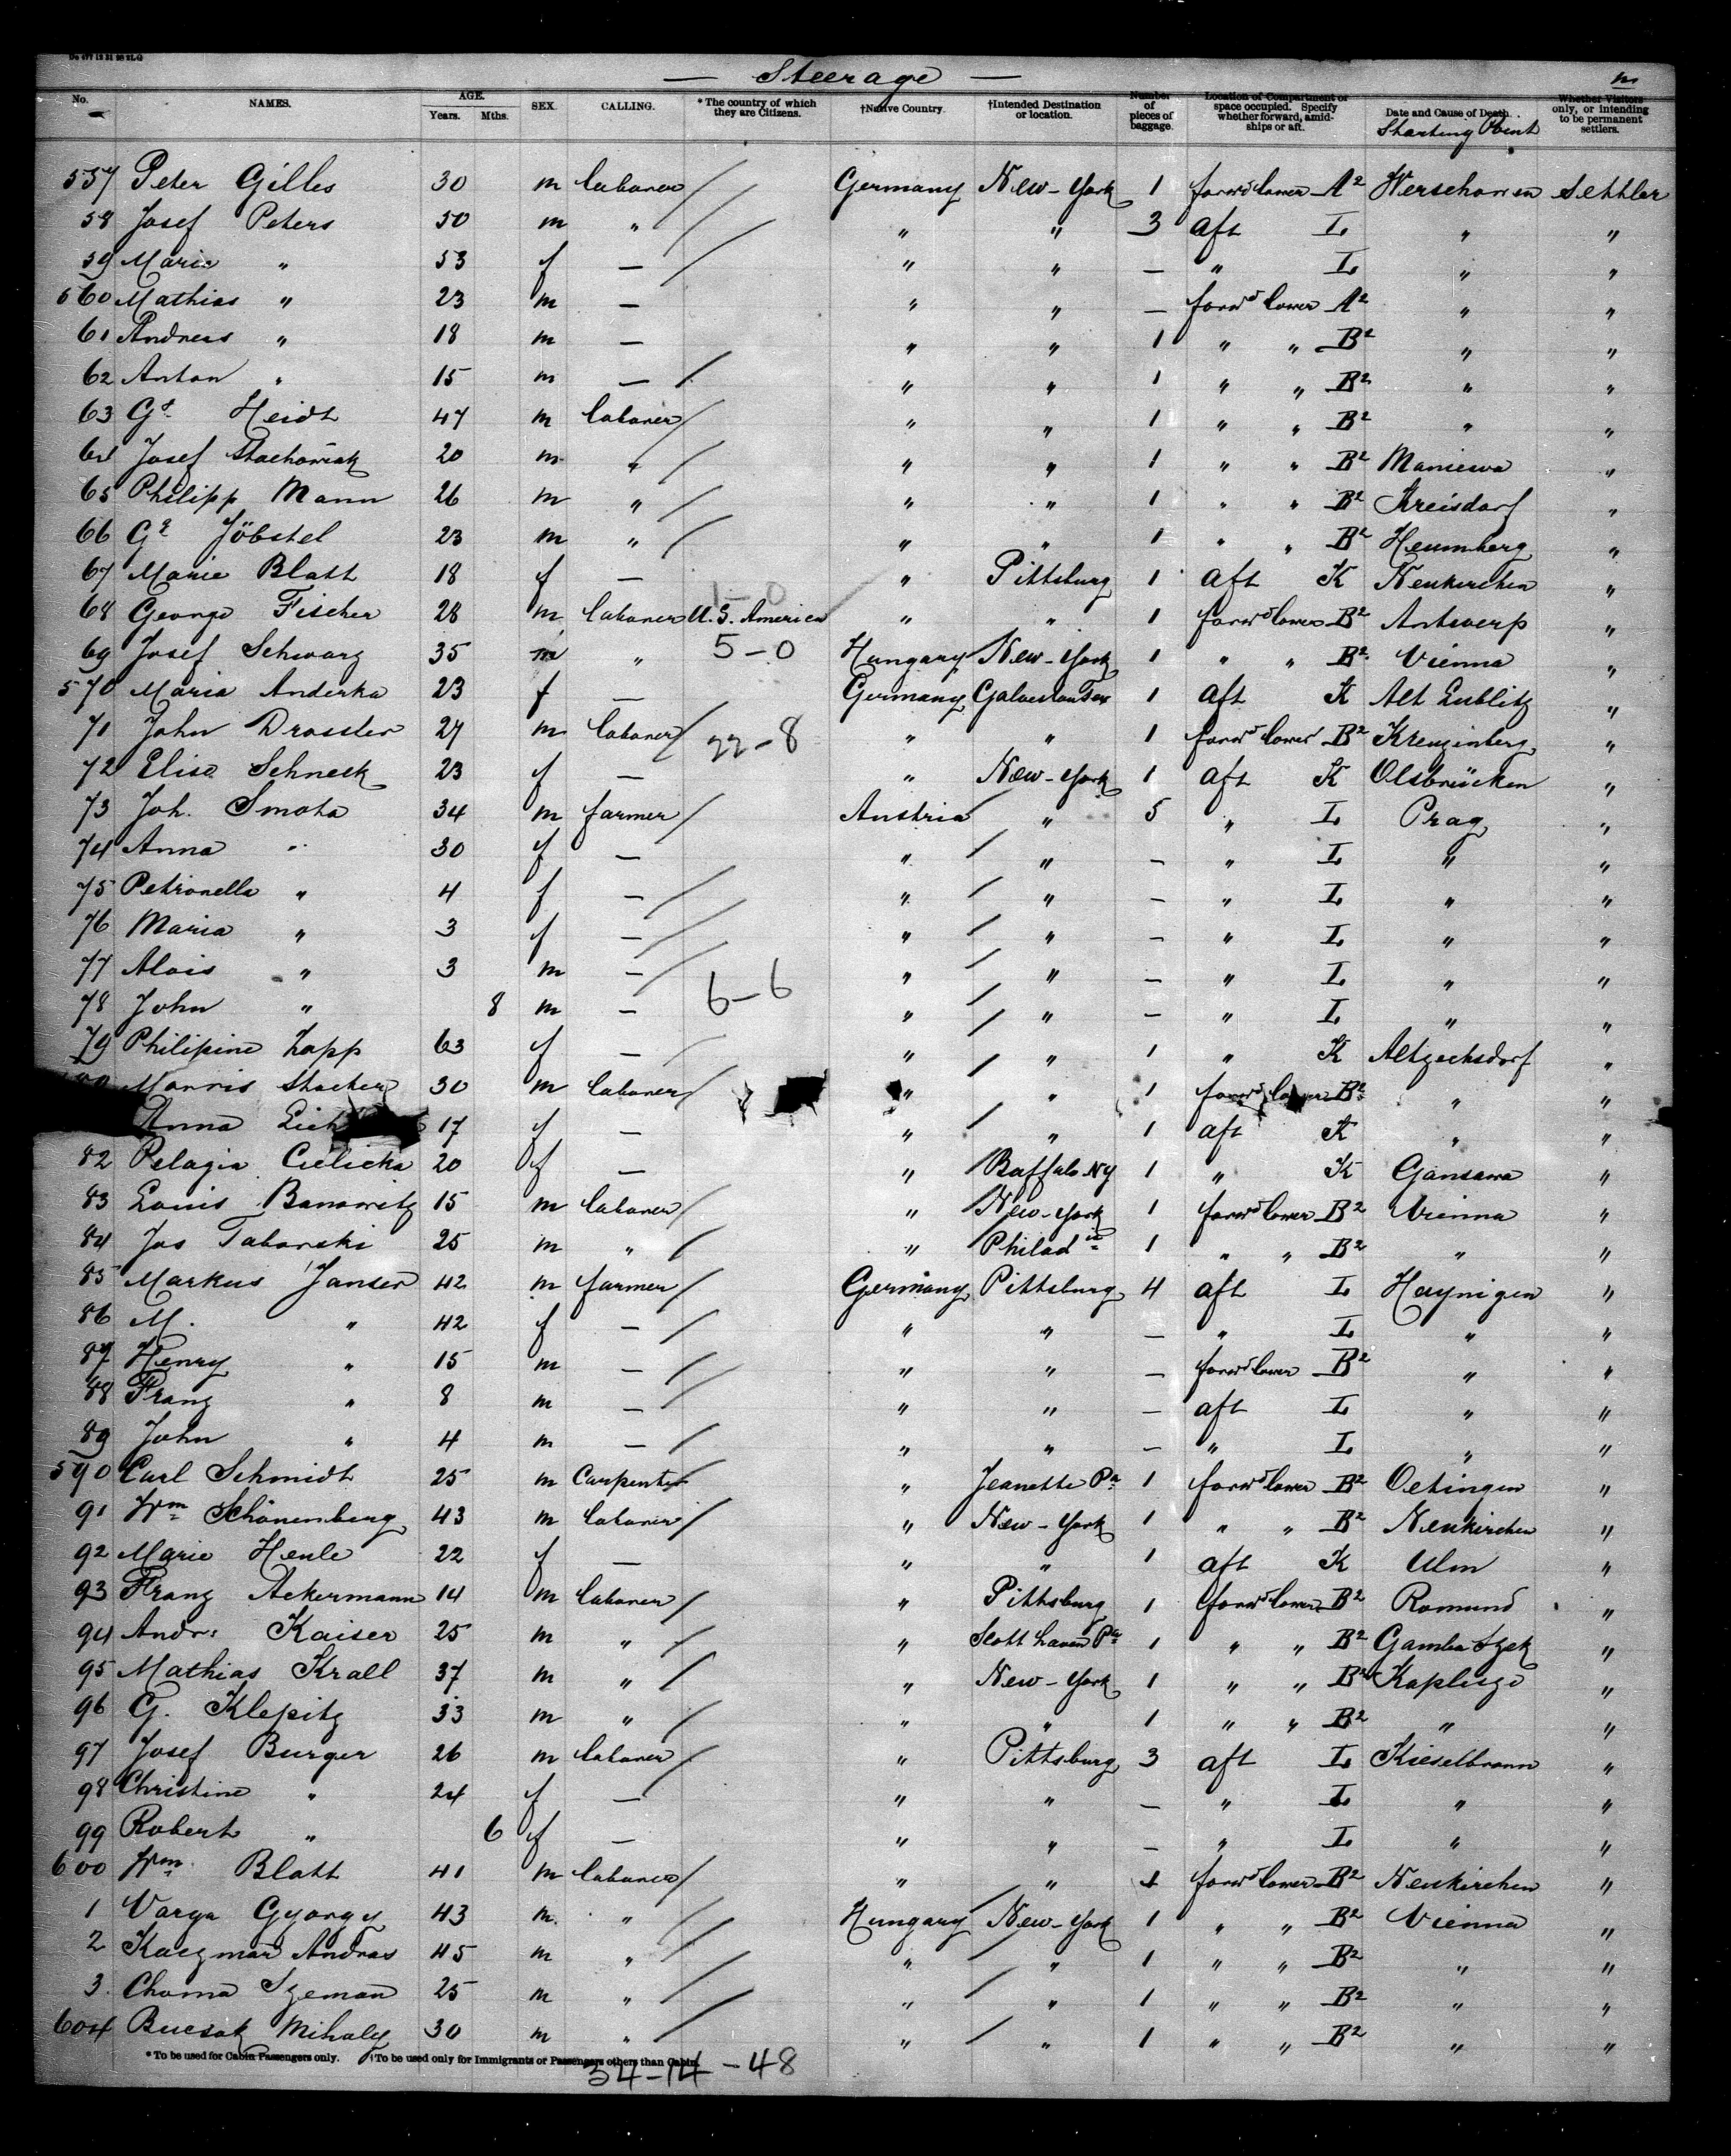 — Steerage —
No. NAMES. AGE. Years. Mths. SEX. CALLING. * The country of which they are Citizens. †Native Country. †Intended Destination or location. Number of pieces of baggage. Location of Compartment or space occupied. Specify whether forward, amidships or aft. Date and Cause of Death. Starting Point Whether Visitors only, or intending to be permanent settlers.
557 Peter Gilles 30 m laborer Germany New-York 1 forwd lower A2 Werschowen Setthler
58 Josef Peters 50 m " " " 3 aft L " "
59 Maria " 53 f — " " — " L " "
560 Mathias " 23 m — " " — forwd lower A2 " "
61 Andreas " 18 m — " " 1 " " B2 " "
62 Anton " 15 m — " " 1 " " B2 " "
63 Gg Heidt 47 m laborer " " 1 " " B2 " "
64 Josef Stachowiak 20 m " " " 1 " " B2 Maniewa "
65 Philipp Mann 26 m " " " 1 " " B2 Kreisdorf "
66 Gg Jöbstel 23 m " " " 1 " " B2 Heumberg "
67 Marie Blatt 18 f — " Pittsburg 1 aft K Neukirchen "
1-0
68 George Fischer 28 m laborer U.S. America " " 1 forwd lower B2 Antwerp "
69 Josef Schwarz 35 m " 5-0 Hungary New-York 1 " " B2 Vienna "
570 Maria Anderka 23 f — Germany Galveston Tex 1 aft K Alt Lublitz "
71 John Drossler 27 m laborer 22-8 " " 1 forwd lower B2 Kreuzinberg "
72 Elise Schneck 23 f — " New-York 1 aft K Olsbrücken "
73 Joh. Smota 34 m farmer Austria " 5 " L Prag "
74 Anna " 30 f — " " — " L " "
75 Petronella " 4 f — " " — " L " "
76 Maria " 3 f — " " — " L " "
77 Alois " 3 m — " " — " L " "
78 John " 8 m — 6-6 " " — " L " "
79 Philipine Zapp 63 f — " " 1 " K Altzechsdorf "
Morris Stacher 30 m laborer " " 1 forwd lower B2 " "
Anna 17 f — " " 1 aft K " "
82 Pelagia Cielicka 20 f — " Buffalo NY 1 " K Gansawa "
83 Louis Banowitz 15 m laborer " New-York 1 forwd lower B2 Vienna "
84 Jos Taborski 25 m " " Philadia 1 " " B2 " "
85 Markus Janser 42 m farmer Germany Pittsburg 4 aft L Haynigen "
86 M. " 42 f — " " — " L " "
87 Henry " 15 m — " " — forwd lower B2 " "
88 Franz " 8 m — " " — aft L " "
89 John " 4 m — " " — " L " "
590 Carl Schmidt 25 m Carpenter " Jeanette Pa 1 forwd lower B2 Oetingen "
91 Wm Schönenberg 43 m laborer " New-York 1 " " B2 Neukirchen "
92 Marie Henle 22 f — " " 1 aft K Ulm "
93 Franz Ackermann 14 m laborer " Pittsburg 1 forwd lower B2 Romund "
94 Andr: Kaiser 25 m " " Scott haven Pa 1 " " B2 Gamba Szek "
95 Mathias Krall 37 m " " New-York 1 " " B2 Kaplisze "
96 G. Klepitz 33 m " " " 1 " " B2 " "
97 Josef Burger 26 m laborer " Pittsburg 3 aft L Kieselbronn "
98 Christine " 24 f — " " — " L " "
99 Robert " 6 f — " " — " L " "
600 Wm Blatt 41 m laborer " " 1 forwd lower B2 Neukirchen "
1 Varga Gyorgy 43 m " Hungary New-York 1 " " B2 Vienna "
2 Kaczmar Andras 45 m " " " 1 " " B2 " "
3. Choma Szeman 25 m " " " 1 " " B2 " "
604 Bucsak Mihaly 30 m " " " 1 " " B2 " "
* To be used for Cabin Passengers only. †To be used only for Immigrants or Passengers others than Cabin.
34-14-48